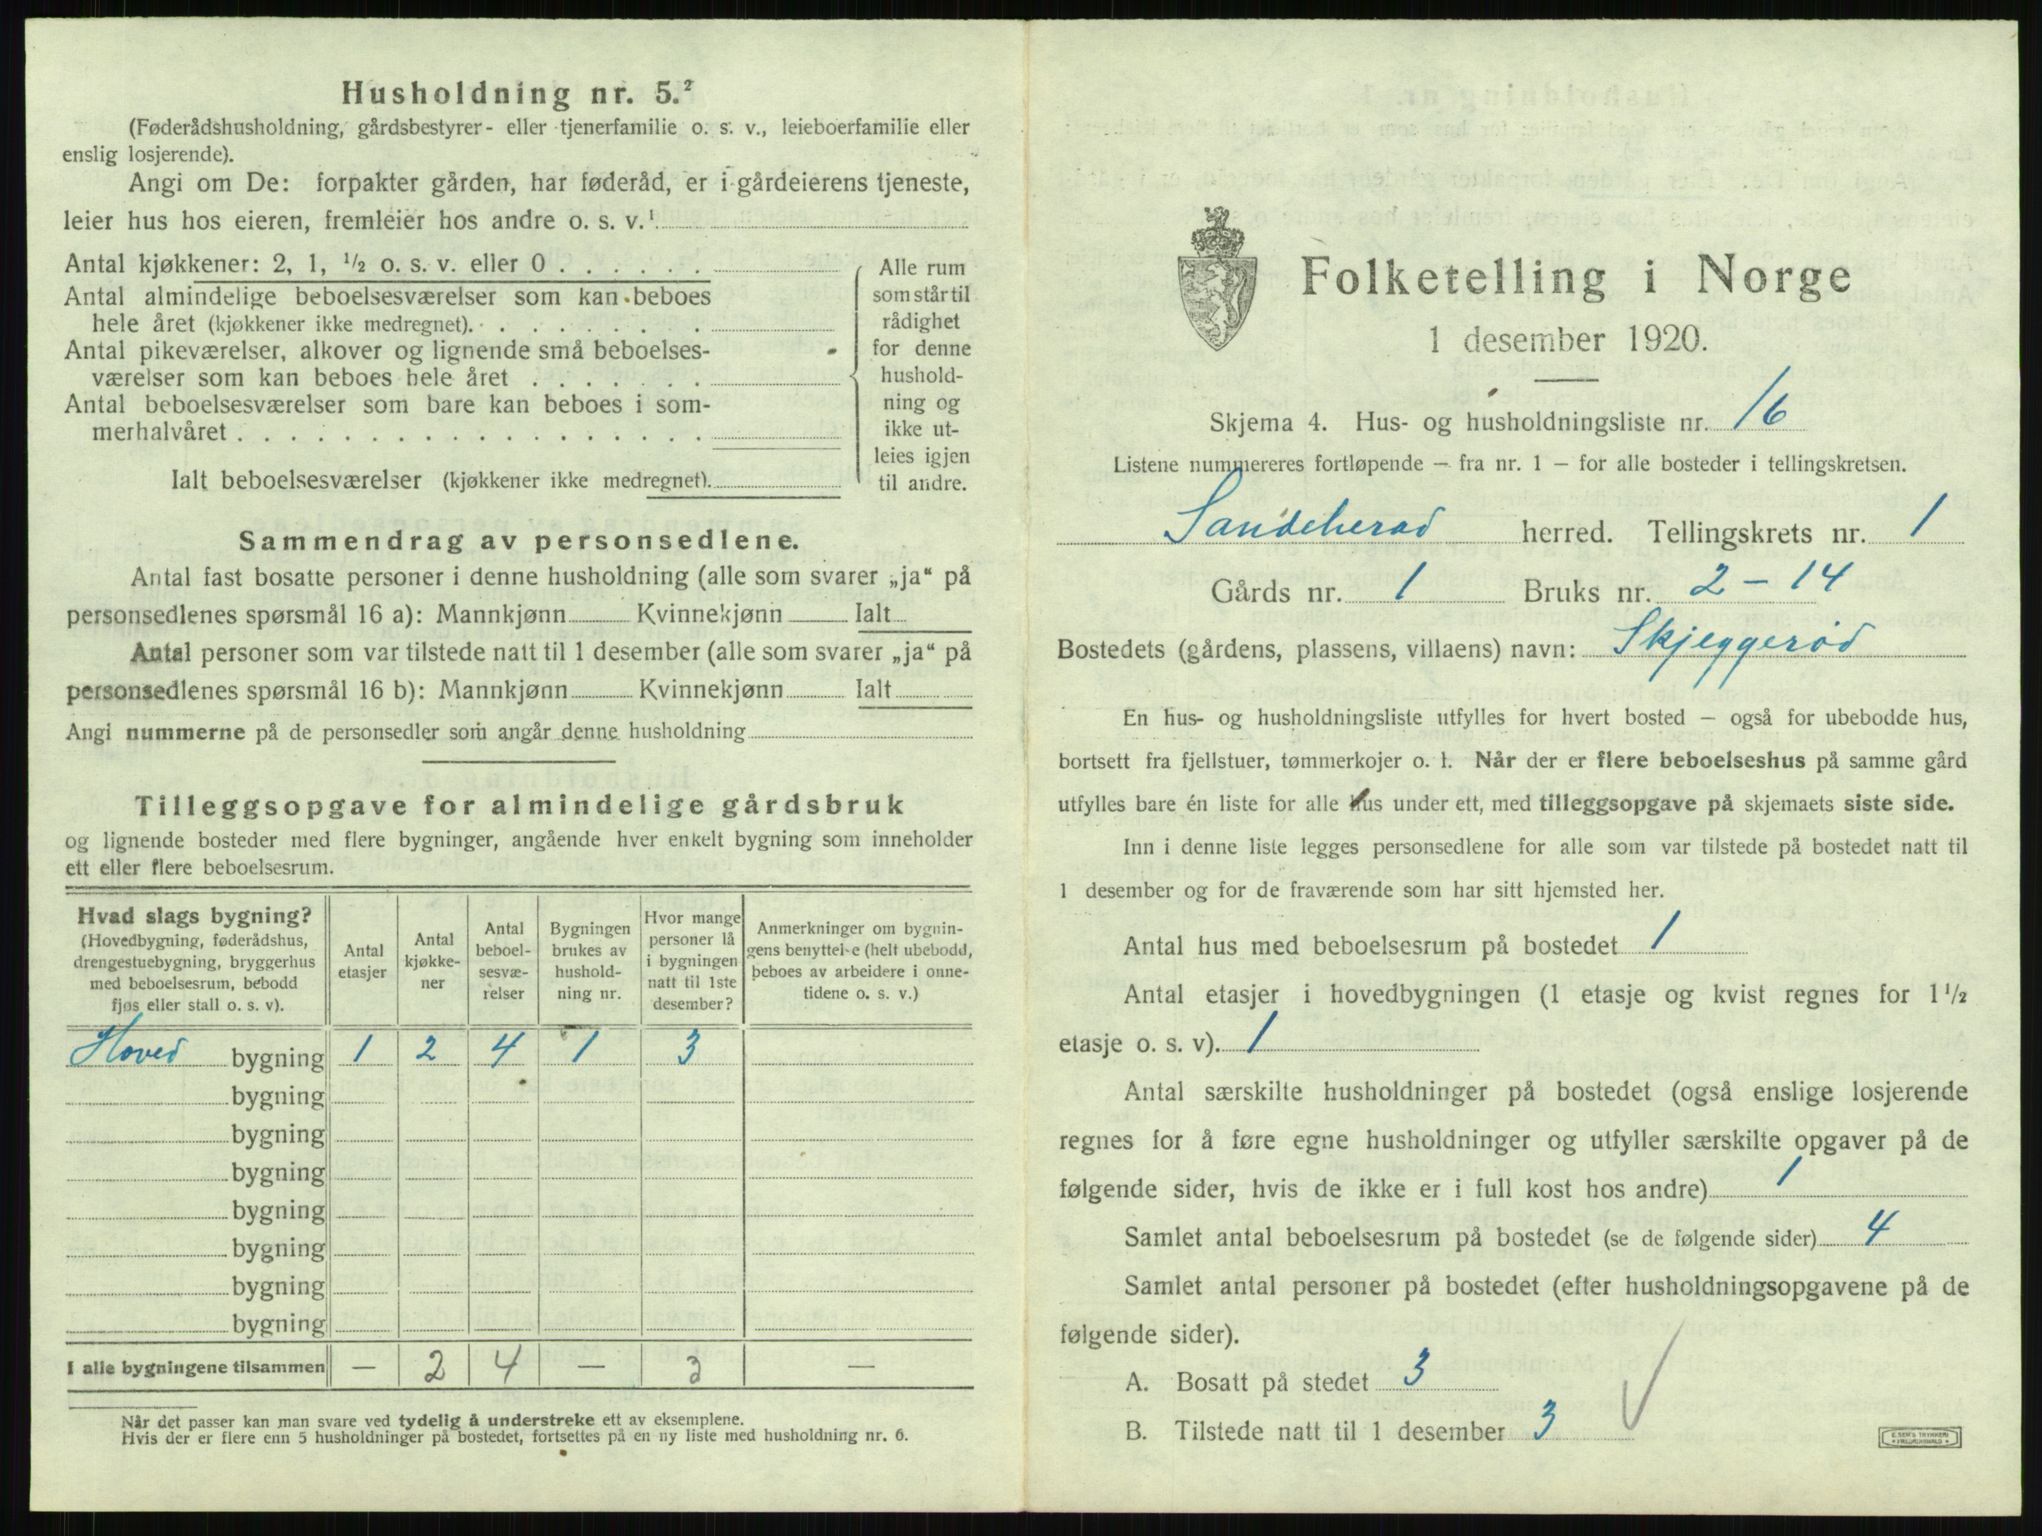 Husholdning nr. 5.²
(Føderådshusholdning, gårdsbestyrer- eller tjenerfamilie o. s. v., leieboerfamilie eller
enslig losjerende).
Angi om De: forpakter gården, har føderåd, er i gårdeierens tjeneste,
leier hus hos eieren, fremleier hos andre o. s. v.¹
Antal kjøkkener: 2, 1, ½ o. s. v. eller 0 . . . . . .
Antal almindelige beboelsesværelser som kan beboes
hele året (kjøkkener ikke medregnet). . . . . . . . .
Antal pikeværelser, alkover og lignende små beboelses-
værelser som kan beboes hele året . . . . . . .
Antal beboelsesværelser som bare kan beboes i som-
merhalvåret . . . . . . . . . . . . . . . . . .
Ialt beboelsesværelser (kjøkkener ikke medregnet).
Alle rum
som står til
rådighet
for denne
hushold-
ning og
ikke ut-
leies igjen
til andre.
Sammendrag av personsedlene.
Antal fast bosatte personer i denne husholdning (alle som svarer „ja“ på
personsedlenes spørsmål 16 a): Mannkjønn Kvinnekjønn Ialt
Antal personer som var tilstede natt til 1 desember (alle som svarer „ja“ på
personsedlenes spørsmål 16 b): Mannkjønn Kvinnekjønn Ialt
Angi nummerne på de personsedler som angår denne husholdning
Tilleggsopgave for almindelige gårdsbruk
og lignende bosteder med flere bygninger, angående hver enkelt bygning som inneholder
ett eller flere beboelsesrum.
Hvad slags bygning?
(Hovedbygning, føderådshus,
drengestuebygning, bryggerhus
med beboelsesrum, bebodd
fjøs eller stall o. s. v).
Antal
etasjer
Antal
kjøkke-
ner
Antal
beboel-
sesvæ-
relser
Bygningen
brukes av
hushold-
ning nr.
Hvor mange
personer lå
i bygningen
natt til 1ste
desember?
Anmerkninger om bygnin-
gens benyttelse (helt ubebodd,
beboes av arbeidere i onne-
tidene o. s. v.)
Hoved bygning 1 2 4 1 3
bygning
bygning
bygning
bygning
bygning
bygning
bygning
I alle bygningene tilsammen — 2 4 — 3 —
Når det passer kan man svare ved tydelig å understreke ett av eksemplene.
Hvis der er flere enn 5 husholdninger på bostedet, fortsettes på en ny liste med husholdning nr. 6.
Folketelling i Norge
1 desember 1920.
Skjema 4. Hus- og husholdningsliste nr. 16
Listene nummereres fortløpende — fra nr. 1 — for alle bosteder i tellingskretsen.
Sandeherad herred. Tellingskrets nr. 1
Gårds nr. 1 Bruks nr. 2 - 14
Bostedets (gårdens, plassens, villaens) navn: Skjeggerød
En hus- og husholdningsliste utfylles for hvert bosted — også for ubebodde hus,
bortsett fra fjellstuer, tømmerkojer o. l. Når der er flere beboelseshus på samme gård
utfylles bare én liste for alle hus under ett, med tilleggsopgave på skjemaets siste side.
Inn i denne liste legges personsedlene for alle som var tilstede på bostedet natt til
1 desember og for de fraværende som har sitt hjemsted her.
Antal hus med beboelsesrum på bostedet 1
Antal etasjer i hovedbygningen (1 etasje og kvist regnes for 1½
etasje o. s. v). 1
Antal særskilte husholdninger på bostedet (også enslige losjerende
regnes for å føre egne husholdninger og utfyller særskilte opgaver på de
følgende sider, hvis de ikke er i full kost hos andre) 1
Samlet antal beboelsesrum på bostedet (se de følgende sider) 4
Samlet antal personer på bostedet (efter husholdningsopgavene på de
følgende sider).
A. Bosatt på stedet 3
B. Tilstede natt til 1 desember 3
E. SEM'S TRYKKERI
FREDRIKSHALD